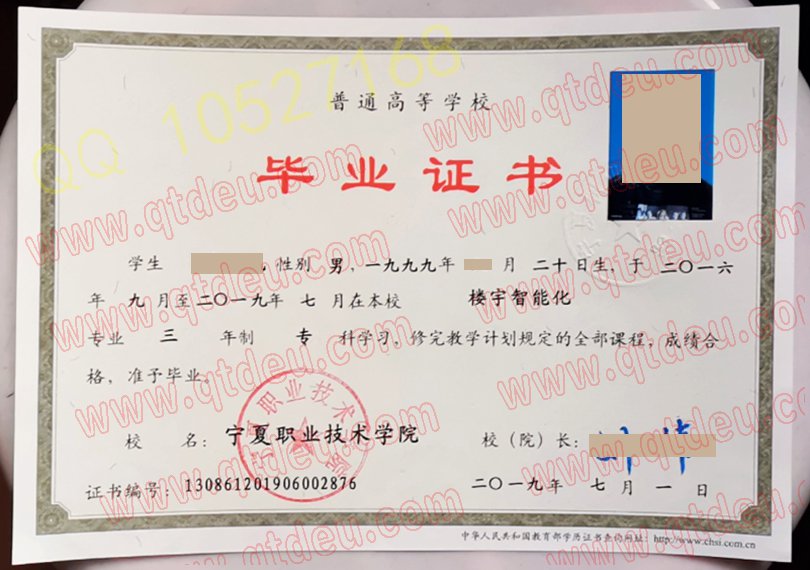 普通高等学校
毕业证书
学生 性别 男，一九九九年 月 二十日生，于 二〇一六
年 九月至二〇一九年 七 月在本校 楼宇智能化
专业 三 年制 专 科学习，修完教学计划规定的全部课程，成绩合
格，准予毕业。
校 名：宁夏职业技术学院 校（院）长：
证书编号：130861201906002876 二〇一九年 七 月 一 日
中华人民共和国教育部学历证书查询网址：http://www.chsi.com.cn
QQ 10527168
www.qtdeu.com
www.qtdeu.com
www.qtdeu.com
www.qtdeu.com
www.qtdeu.com
www.qtdeu.com
www.qtdeu.com
www.qtdeu.com